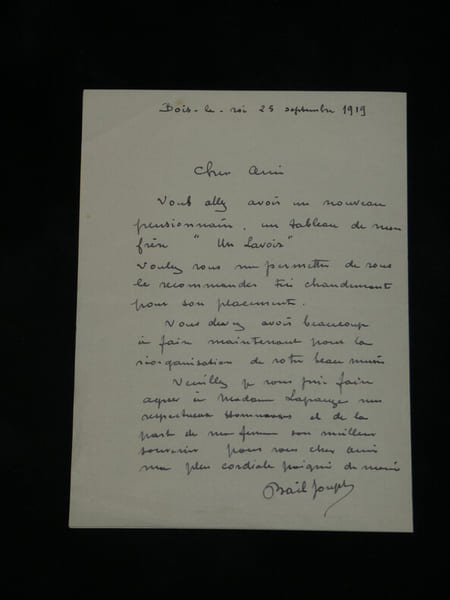 Bois-le-roi 25 septembre 1919
Cher Ami
Vous allez avoir un nouveau
pensionnaire. un tableau de mon
frère "Un Lavoir"
Voulez vous me permettre de vous
le recommander très chaudement
pour son placement.
Vous devez avoir beaucoup
à faire maintenant pour la
réorganisation de votre beau musée
Veuillez je vous prie faire
agréer à Madame Lapauze mes
respectueux Hommages et de la
part de ma femme son meilleur
souvenir pour vous cher ami
ma plus cordiale poignée de main
Bail Joseph